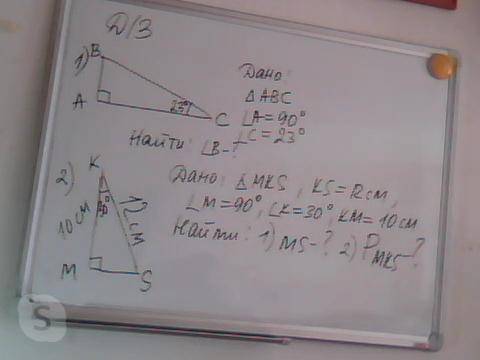 Д/З
1) B
A
23°
C
Дано:
△ABC
∠A = 90°
∠C = 23°
Найти: ∠B - ?
2) K
30°
10 см
12 см
M
S
Дано: △MKS, KS = 12 см,
∠M = 90°, ∠K = 30°, KM = 10 см
Найти: 1) MS - ? 2) P MKS - ?
S